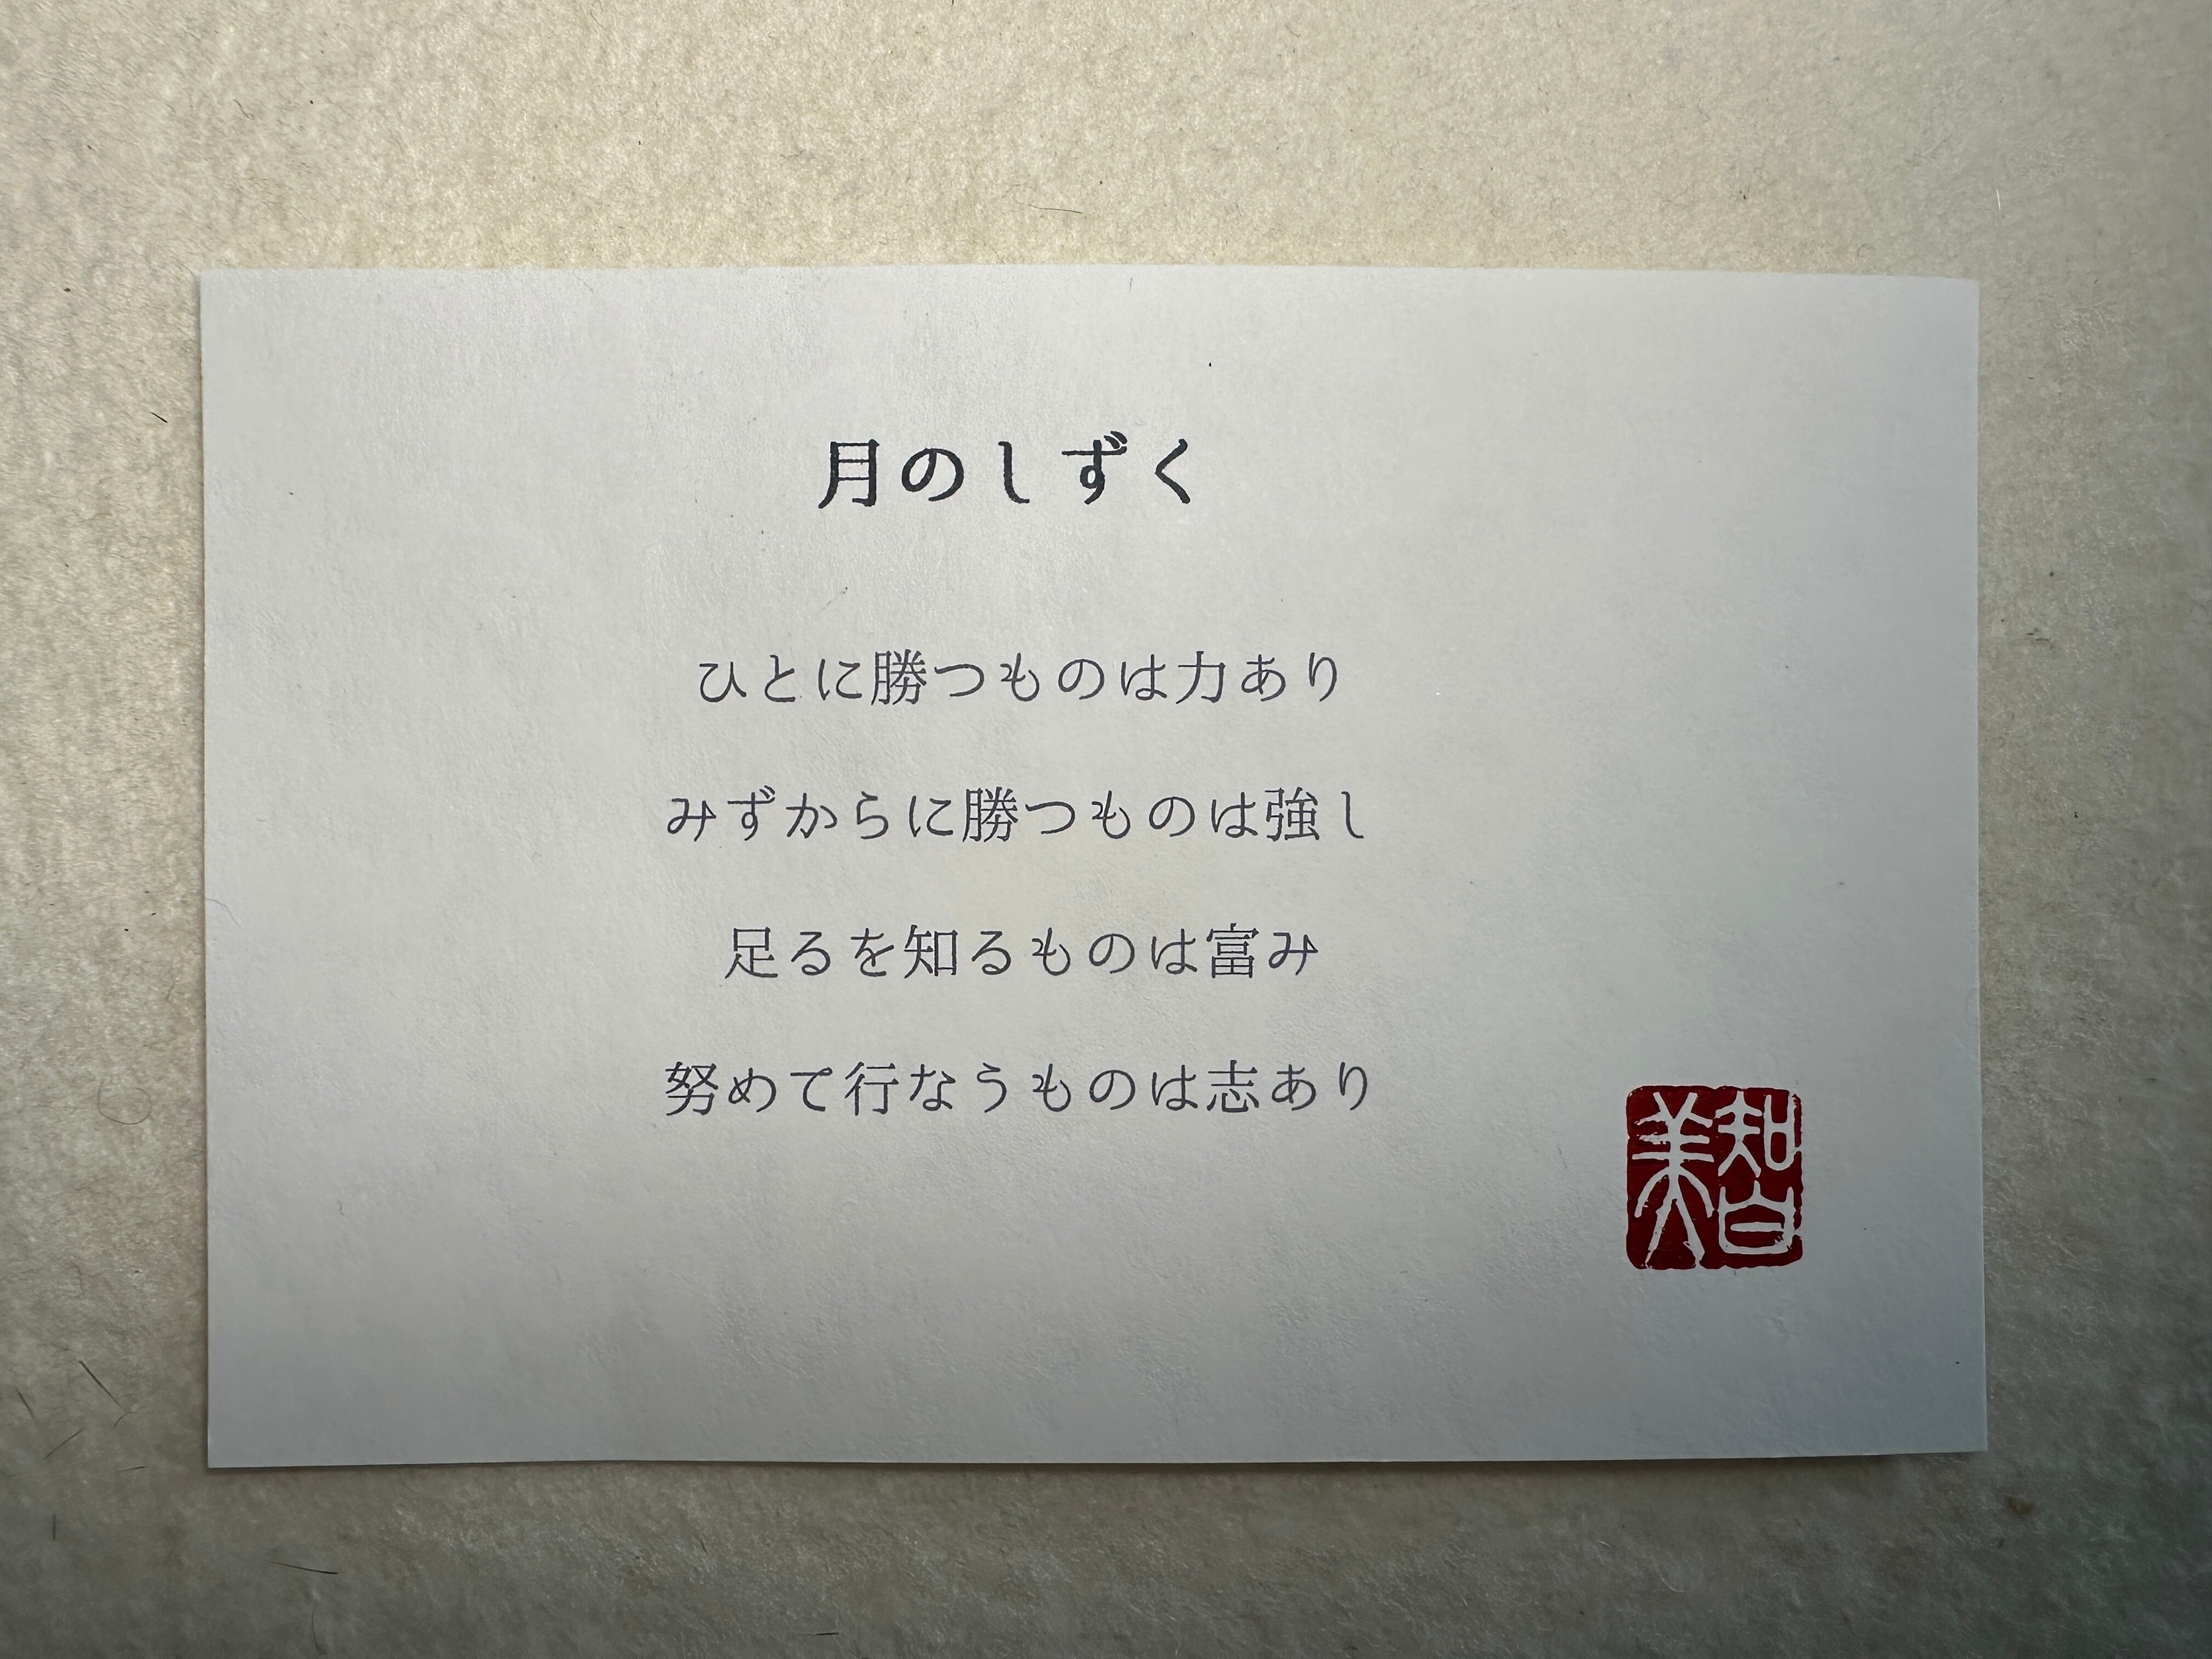 月のしずく
ひとに勝つものは力あり
みずからに勝つものは強し
足るを知るものは富み
努めて行なうものは志あり
智美